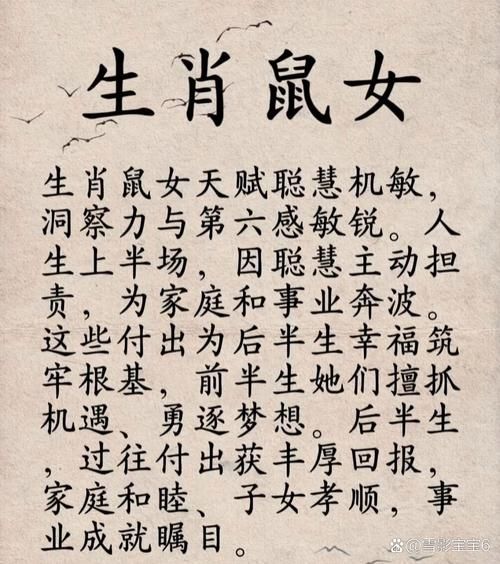 生肖鼠女
生肖鼠女天赋聪慧机敏，
洞察力与第六感敏锐。人
生上半场，因聪慧主动担
责，为家庭和事业奔波。
这些付出为后半生幸福筑
牢根基，前半生她们擅抓
机遇、勇逐梦想。后半生
，过往付出获丰厚回报，
家庭和睦、子女孝顺，事
业成就瞩目。
雪影宝宝6